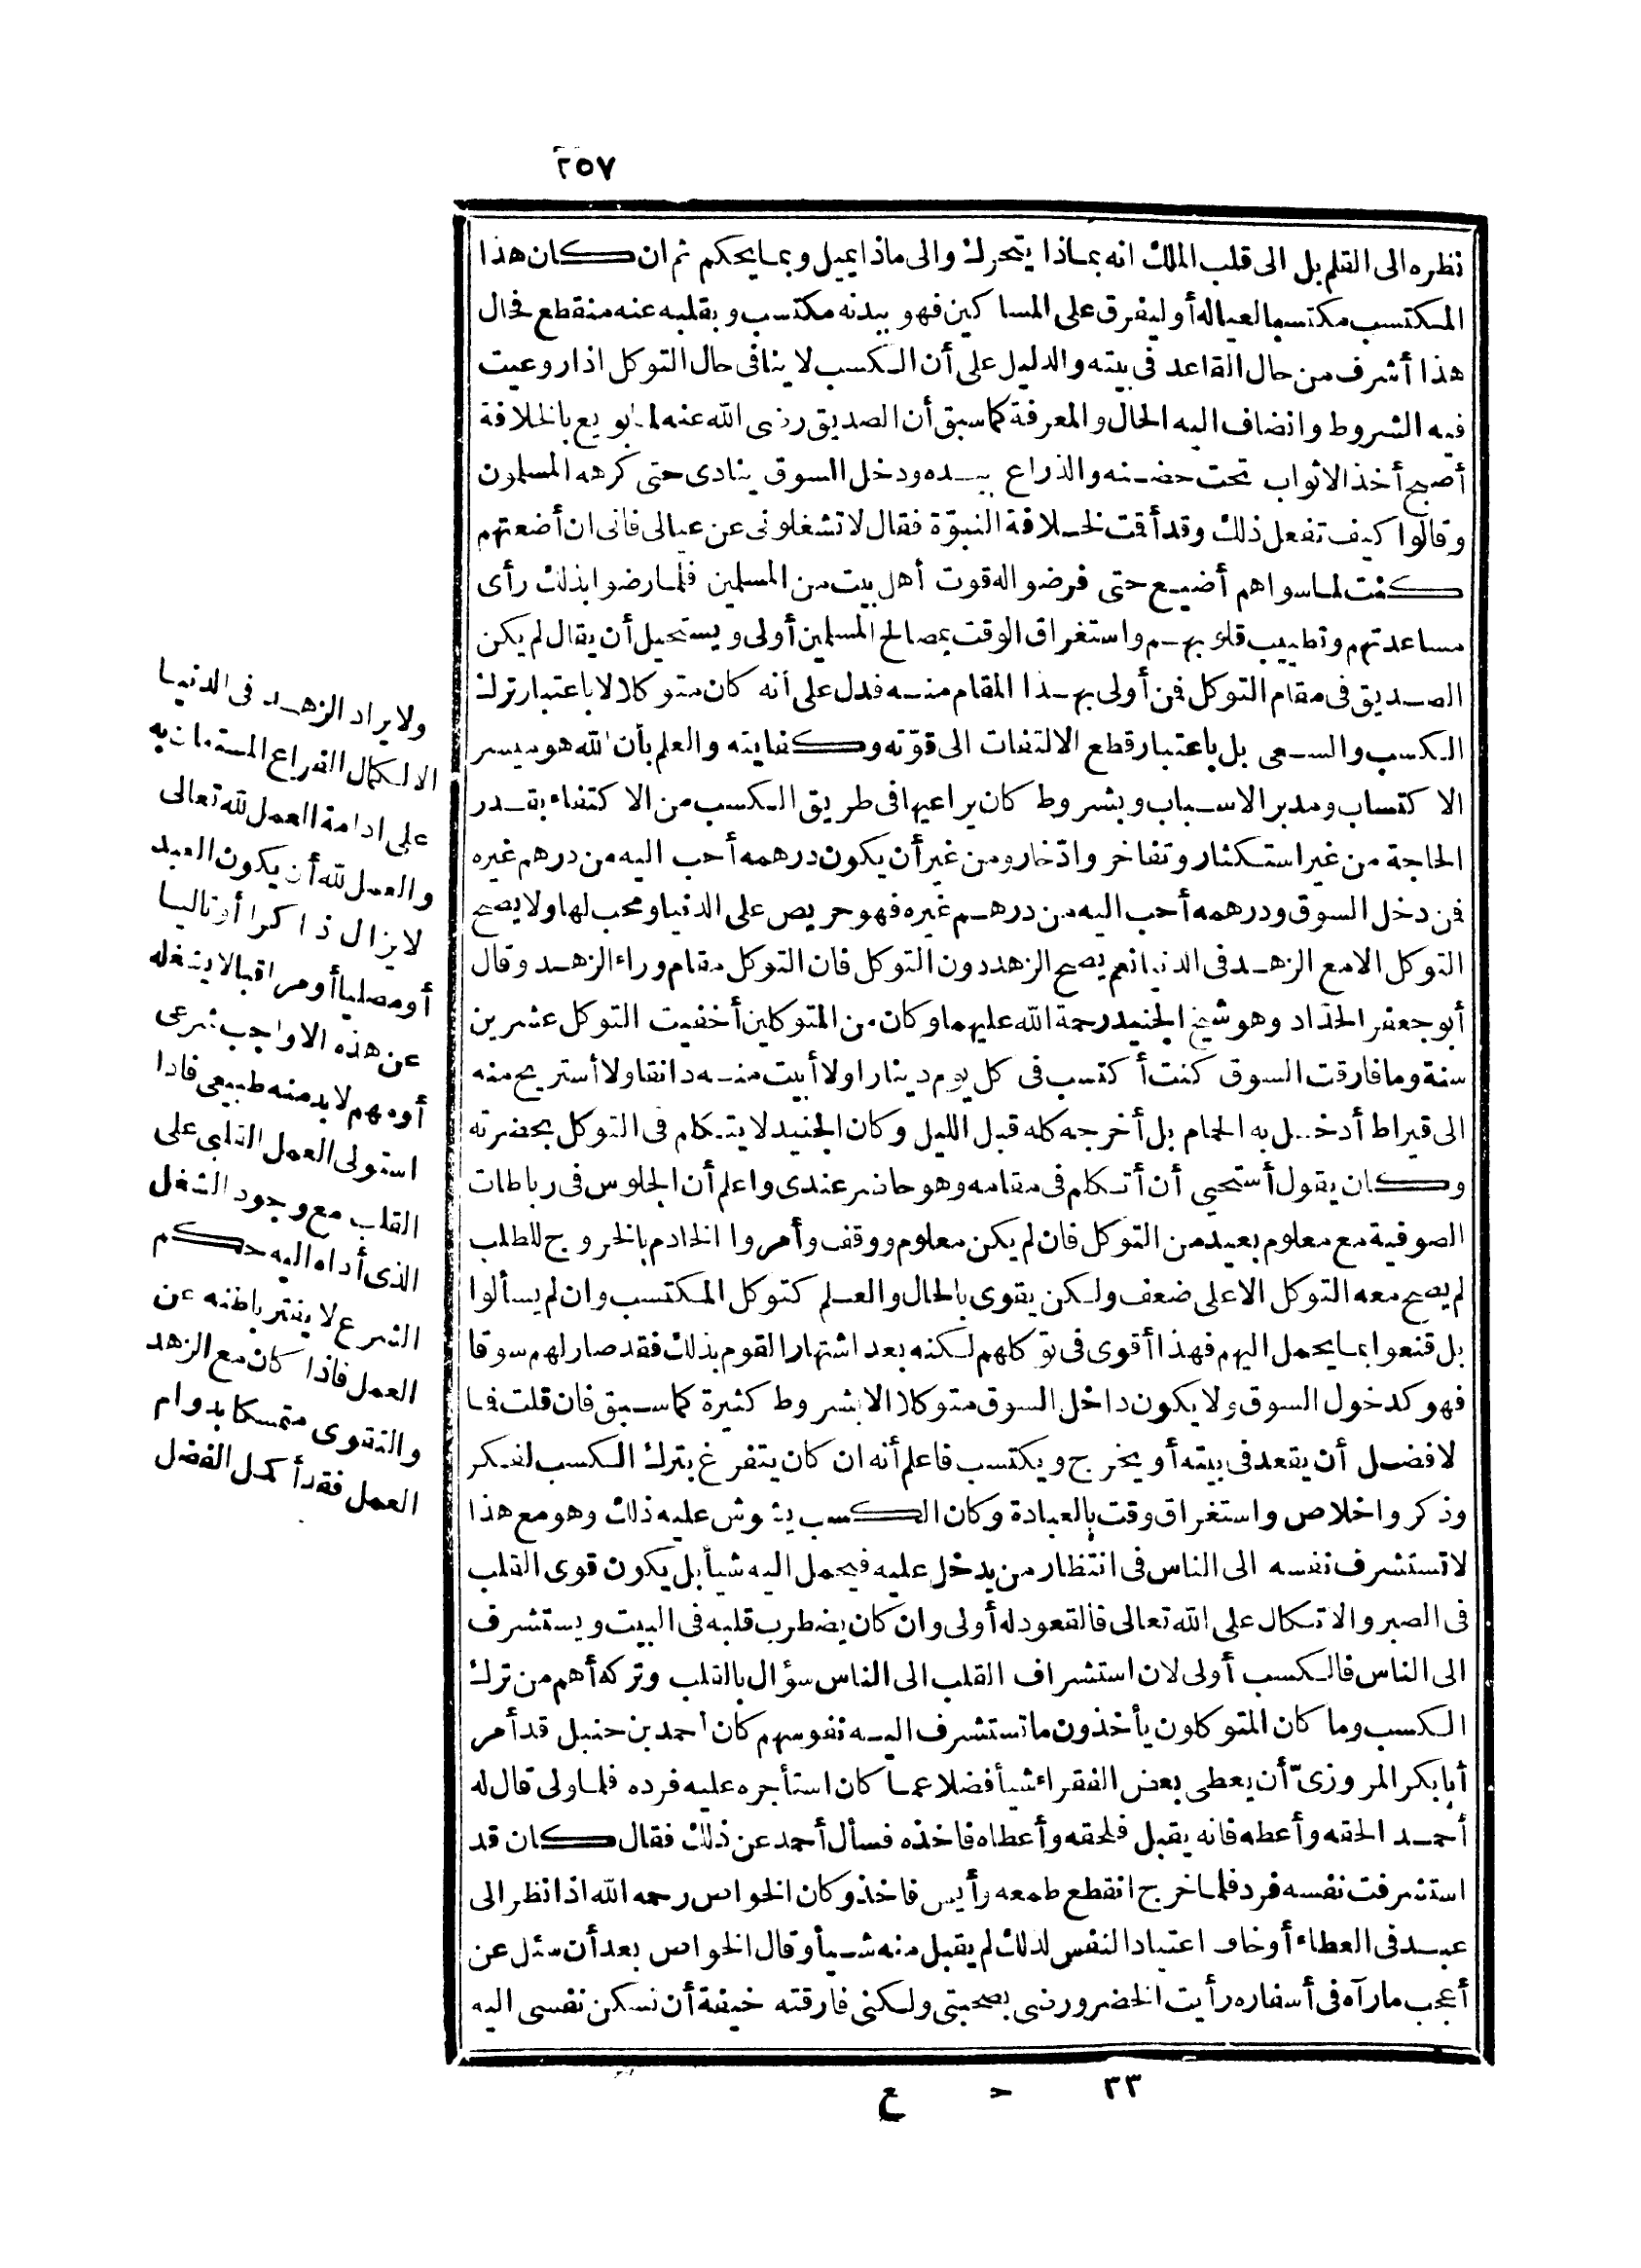 ٢٥٧
نظره الى القلم بل الى قلب الملك انه بماذا يتحرك والى ماذا يميل وبما يحكم ثم ان كان هذا
المكتسب مكتسبا لعياله أو ليفرق على المساكين فهو ببدنه مكتسب وبقلبه عنه منقطع فحال
هذا أشرف من حال القاعد فى بيته والدليل على أن الكسب لا ينافى حال التوكل اذا روعيت
فيه الشروط وانضاف اليه الحال والمعرفة كما سبق أن الصديق رضى الله عنه لما بويع بالخلافة
أصبح أخذ الاثواب تحت حضنه والذراع بيده ودخل السوق ينادى حتى كرهه المسلمون
وقالوا كيف تفعل ذلك وقد أقت لخلافة النبوّة فقال لا تشغلونى عن عيالى فانى ان أضعتهم
كنت لما سواهم أضيع حتى فرضوا له قوت أهل بيت من المسلمين فلما رضوا بذلك رأى
مساعدتهم وتطييب قلوبهم واستغراق الوقت بمصالح المسلمين أولى ويستحيل أن يقال لم يكن
الصديق فى مقام التوكل فمن أولى بهذا المقام منه فدل على أنه كان متوكلا لا باعتبار ترك
الكسب والسعى بل باعتبار قطع الالتفات الى قوّته وكفايته والعلم بأن الله هو ميسر
الاكتساب ومدبر الاسباب وبشروط كان يراعيها فى طريق الكسب من الاكتفاء بقدر
الحاجة من غير استكثار وتفاخر وادّخار ومن غير أن يكون درهمه أحب اليه من درهم غيره
فمن دخل السوق ودرهمه أحب اليه من درهم غيره فهو حريص على الدنيا ومحب لها ولا يصح
التوكل الا مع الزهد فى الدنيا نعم يصح الزهد دون التوكل فان التوكل مقام وراء الزهد وقال
أبو جعفر الحدّاد وهو شيخ الجنيد رحمة الله عليهما وكان من المتوكلين أخفيت التوكل عشرين
سنة وما فارقت السوق كنت أكتسب فى كل يوم دينارا ولا أبيت منه دانقا ولا أستريح منه
الى قيراط أدخل به الحمام بل أخرجه كله قبل الليل وكان الجنيد لا يتكلم فى التوكل بحضرته
وكان يقول أستحيى أن أتكلم فى مقامه وهو حاضر عندى واعلم أن الجلوس فى رباطات
الصوفية مع معلوم بعيد من التوكل فان لم يكن معلوم ووقف وأمروا الخادم بالخروج للطلب
لم يصح معه التوكل الا على ضعف ولكن يقوى بالحال والعلم كتوكل المكتسب وان لم يسألوا
بل قنعوا بما يحمل اليهم فهذا أقوى فى توكلهم لكنه بعد اشتهار القوم بذلك فقد صار لهم سوقا
فهو كدخول السوق ولا يكون داخل السوق متوكلا الا بشروط كثيرة كما سبق فان قلت فما
لافضل أن يقعد فى بيته أو يخرج ويكتسب فاعلم أنه ان كان يتفرغ بترك الكسب لفكر
وذكر واخلاص واستغراق وقت بالعبادة وكان الكسب يشوش عليه ذلك وهو مع هذا
لا تستشرف نفسه الى الناس فى انتظار من يدخل عليه فيحمل اليه شيأ بل يكون قوى القلب
فى الصبر والاتكال على الله تعالى فالقعود له أولى وان كان يضطرب قلبه فى البيت ويستشرف
الى الناس فالكسب أولى لان استشراف القلب الى الناس سؤال بالقلب وتركه أهم من ترك
الكسب وما كان المتوكلون يأخذون ما تستشرف اليه نفوسهم كان أحمد بن حنبل قد أمر
أبا بكر المروزىّ أن يعطى بعض الفقراء شيأ فضلا عما كان استأجره عليه فرده فلما ولى قال له
أحمد الحقه وأعطه فانه يقبل فلحقه وأعطاه فاخذه فسأل أحمد عن ذلك فقال كان قد
استشرفت نفسه فرد فلما خرج انقطع طمعه وأيس فاخذ وكان الخواص رحمه الله اذا نظر الى
عبد فى العطاء أو خاف اعتياد النفس لذلك لم يقبل منه شيأ وقال الخواص بعد أن سئل عن
أعجب ما رآه فى أسفاره رأيت الخضر ورضى بصحبتى ولكنى فارقته خيفة أن تسكن نفسى اليه
ولا يراد الزهد فى الدنيا
الا لكمال الفراغ المستعان به
على ادامة العمل لله تعالى
والعمل لله أن يكون العبد
لا يزال ذاكرا أو تاليا
أو مصليا أو مراقبا لا يشغله
عن هذه الا واجب شرعى
أو مهم لا بد منه طبيعى فاذا
استولى العمل القلبى على
القلب مع وجود الشغل
الذى أداه اليه حكم
الشرع لا يفتر باطنه عن
العمل فاذا كان مع الزهد
والتقوى متمسكا بدوام
العمل فقد أكمل الفضل
٣٣ ح ع